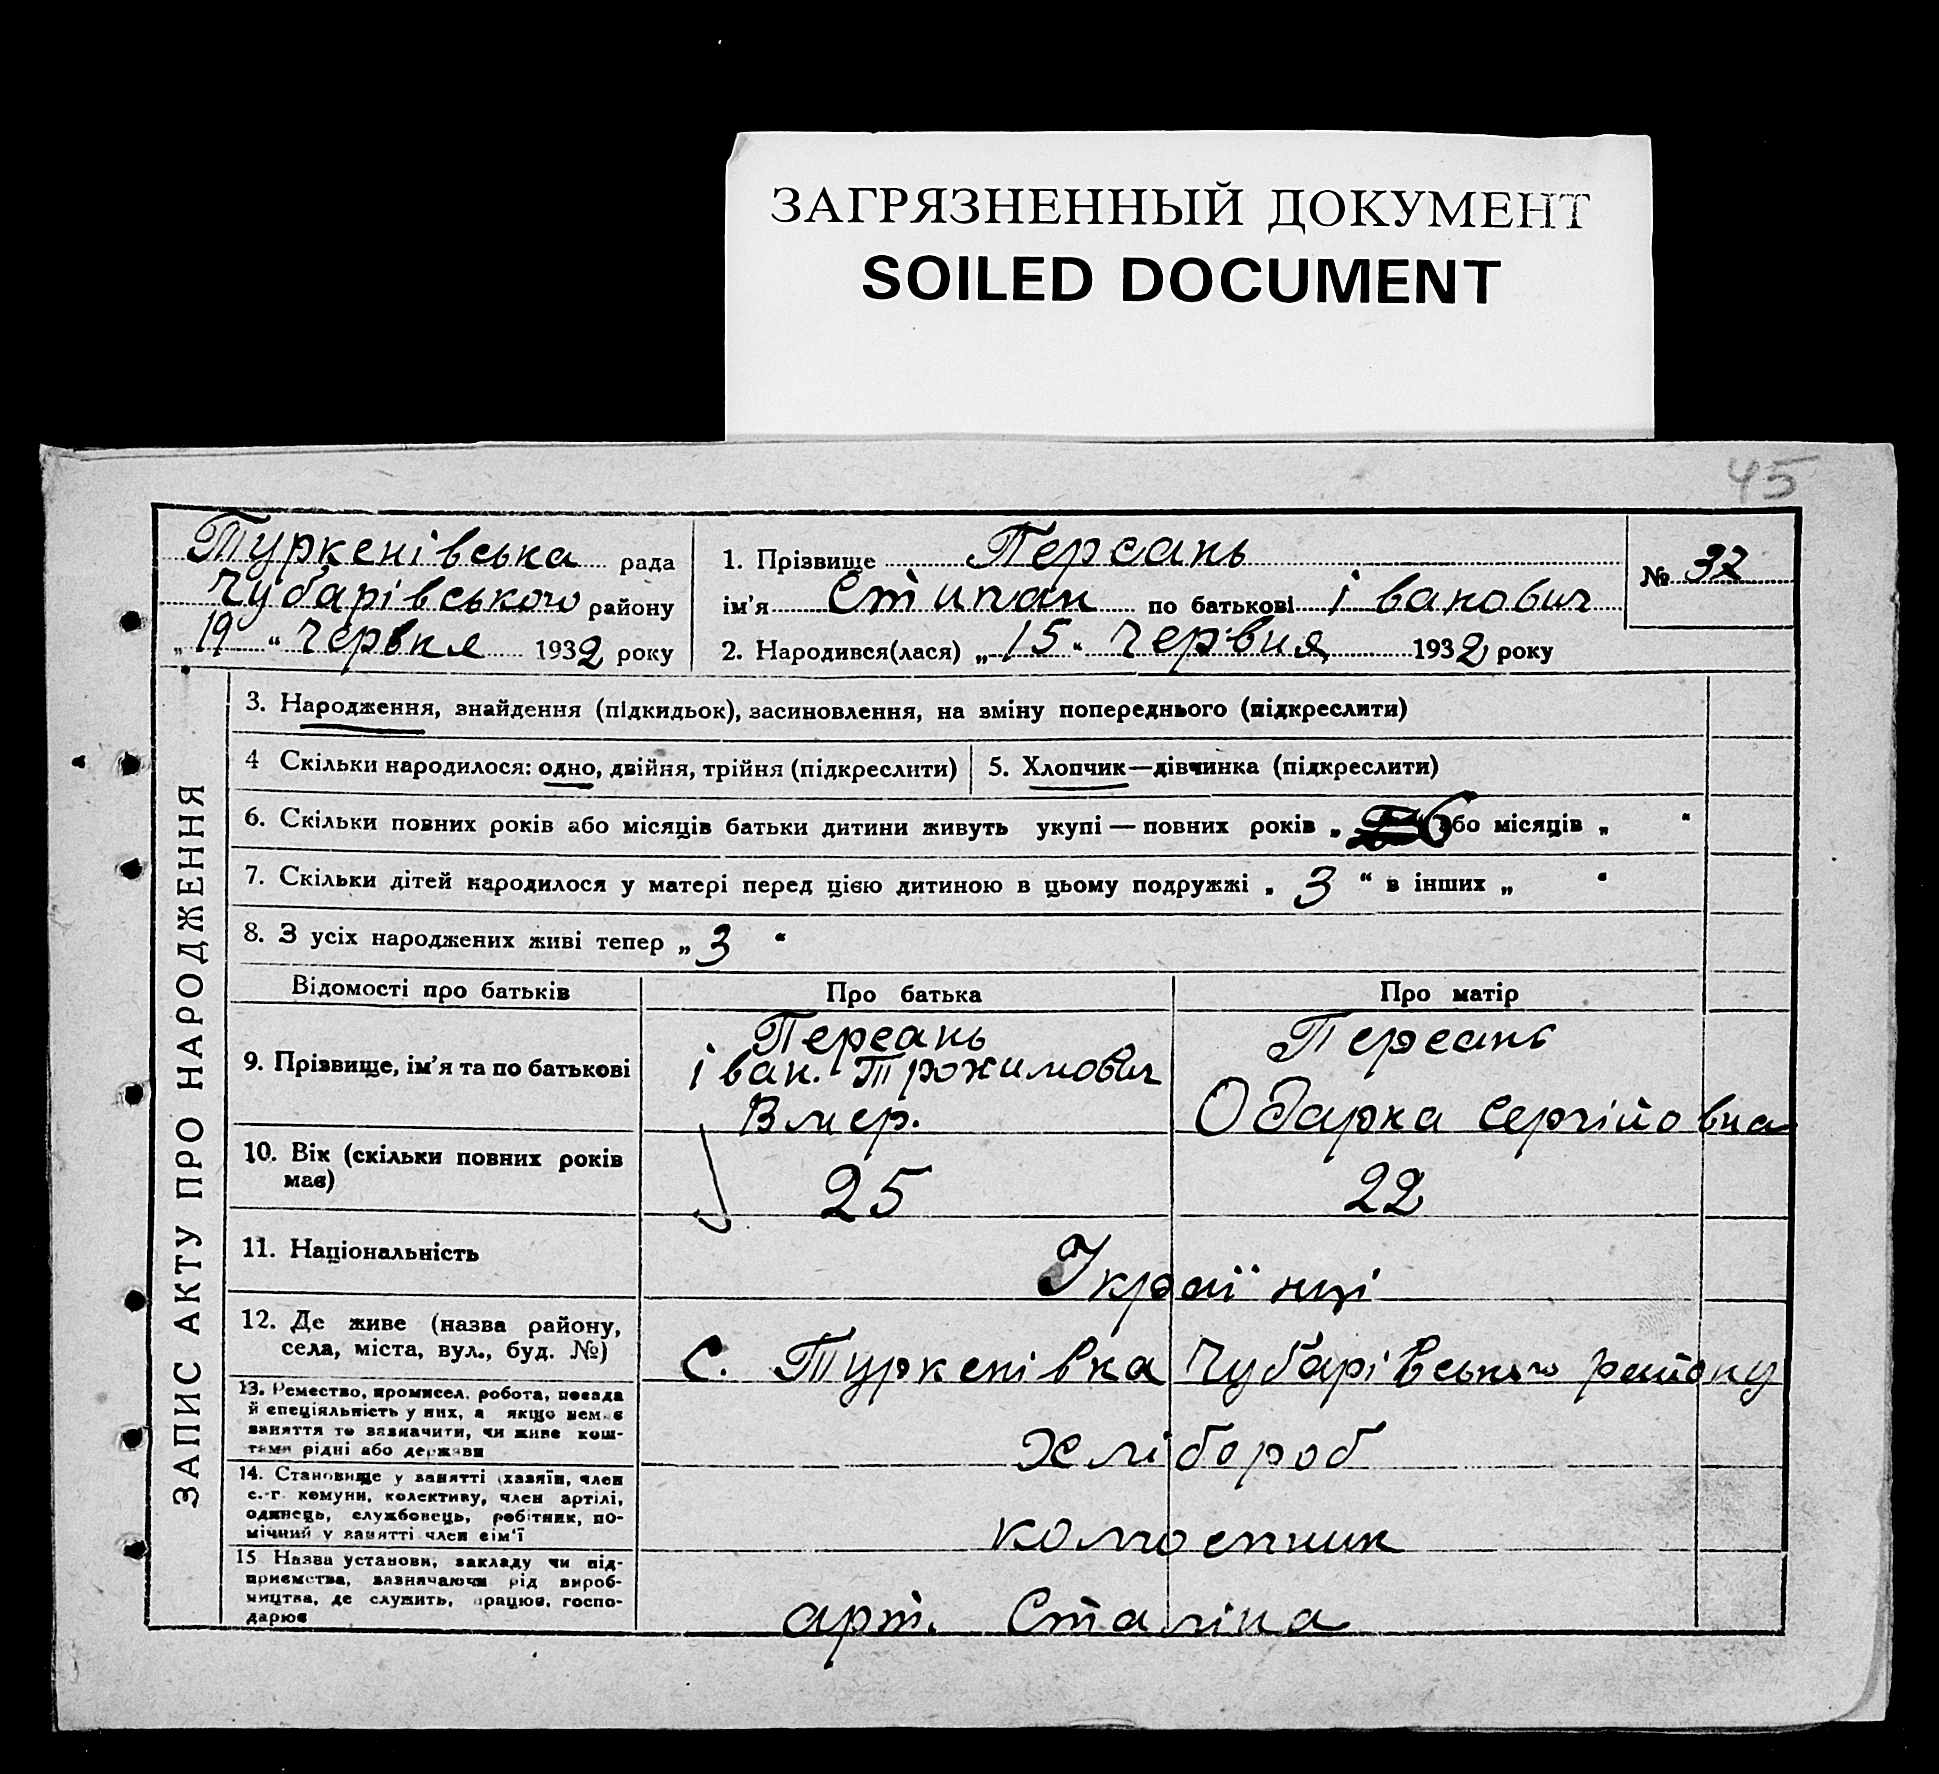 ЗАГРЯЗНЕННЫЙ ДОКУМЕНТ
SOILED DOCUMENT
45
Туркенівська рада
Чубарівського району
„ 19 “ Червня 1932 року
1. Прізвище Персань
ім'я Стипан по батькові Іванович
2. Народився(лася) „ 15 “ Червня 1932 року
№ 32
ЗАПИС АКТУ ПРО НАРОДЖЕННЯ
3. Народження, знайдення (підкидьок), засиновлення, на зміну попереднього (підкреслити)
4 Скільки народилося: одно, двійня, трійня (підкреслити)
5. Хлопчик—дівчинка (підкреслити)
6. Скільки повних років або місяців батьки дитини живуть укупі — повних років „ 6 або місяців „ “
7. Скільки дітей народилося у матері перед цією дитиною в цьому подружжі „ 3 “ в інших „ “
8. З усіх народжених живі тепер „ 3 “
Відомості про батьків
Про батька
Про матір
9. Прізвище, ім'я та по батькові
Персань
Іван. Трохимович
Вмер.
Персань
Одарка Сергійовна
10. Вік (скільки повних років
має)
25
22
11. Національність
Українці
12. Де живе (назва району,
села, міста, вул., буд. №)
С. Туркенівка Чубарівського району
13. Ремество, промисел, робота, посада
й спеціяльність у них, а якщо нема є
заняття то зазначити, чи живе кош-
тами рідні або держави
Хлібороб
14. Становище у занятті (хазяїн, член
с.-г. комуни, колективу, член артілі,
одинець, службовець, робітник, по-
мічний у занятті член сім'ї
колгоспник
15 Назва установи, закладу чи під-
приємства, зазначаючи рід вироб-
ництва, де служить, працює, госпо-
дарює
арт. Сталіна